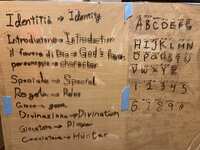 Identità → Identity
Introduzione → Introduction
il favore di Dio → God's favor
personaggio → character
Speciale → Special
Regole → Rules
Gioco → game
Divinazione → Divination
Giocatore → Player
Cacciatore → Hunter
A B C D E F G
H I J K L M N
O P Q R S T U
V W X Y Z
1 2 3 4 5
6 7 8 9 0